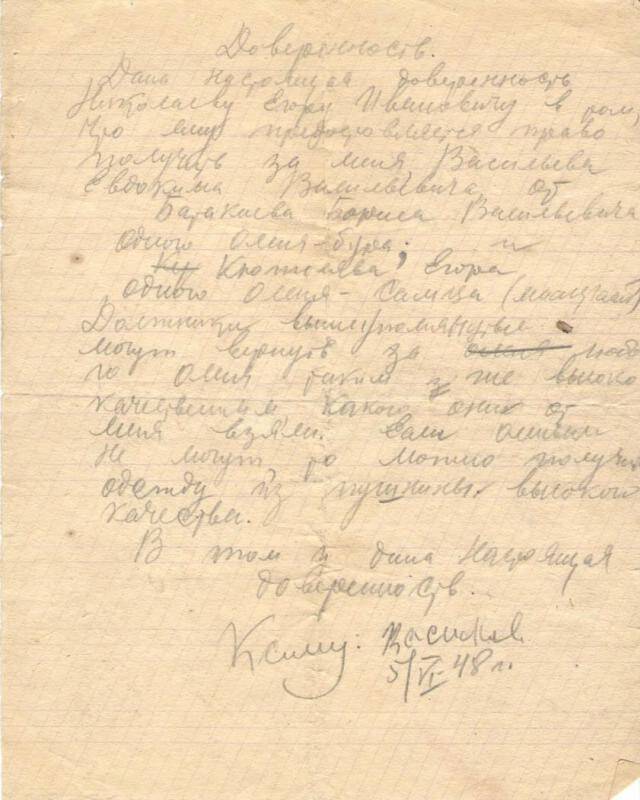 Доверенность.
Дана настоящая доверенность
Николаеву Егору Ивановичу в том,
что ему предоставляется право
получить за меня, Васильева
Евдокима Васильевича, от
Батакаева Бориса Васильевича
одного оленя-быка; и
Егора
одного оленя-самца (
Должники вышеупомянутые
могут вернуть за
го оленя таким же высоко
качественным какого они от
меня взяли. Если оленьем
не могут то можно получить
одежду из пушнины высокой
качества.
В том и дана настоящая
доверенность.
К сему:
5/VI-48 г.